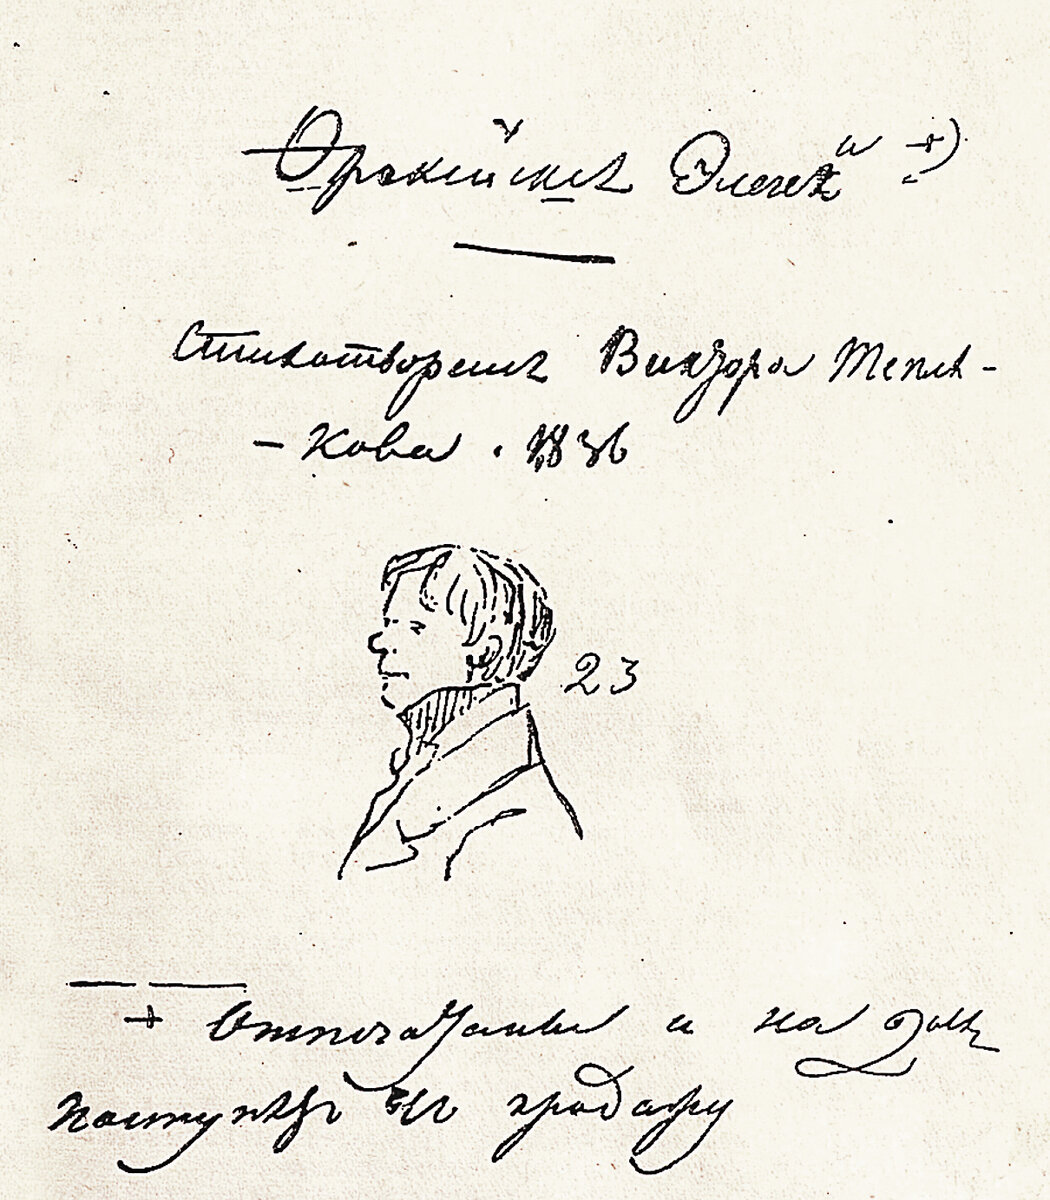 Ѳракійскія Элегіи +)
Стихотворенія Виктора Тепля-
- кова . 1836
23
+ Отпечатаны и на дняхъ
поступятъ въ продажу